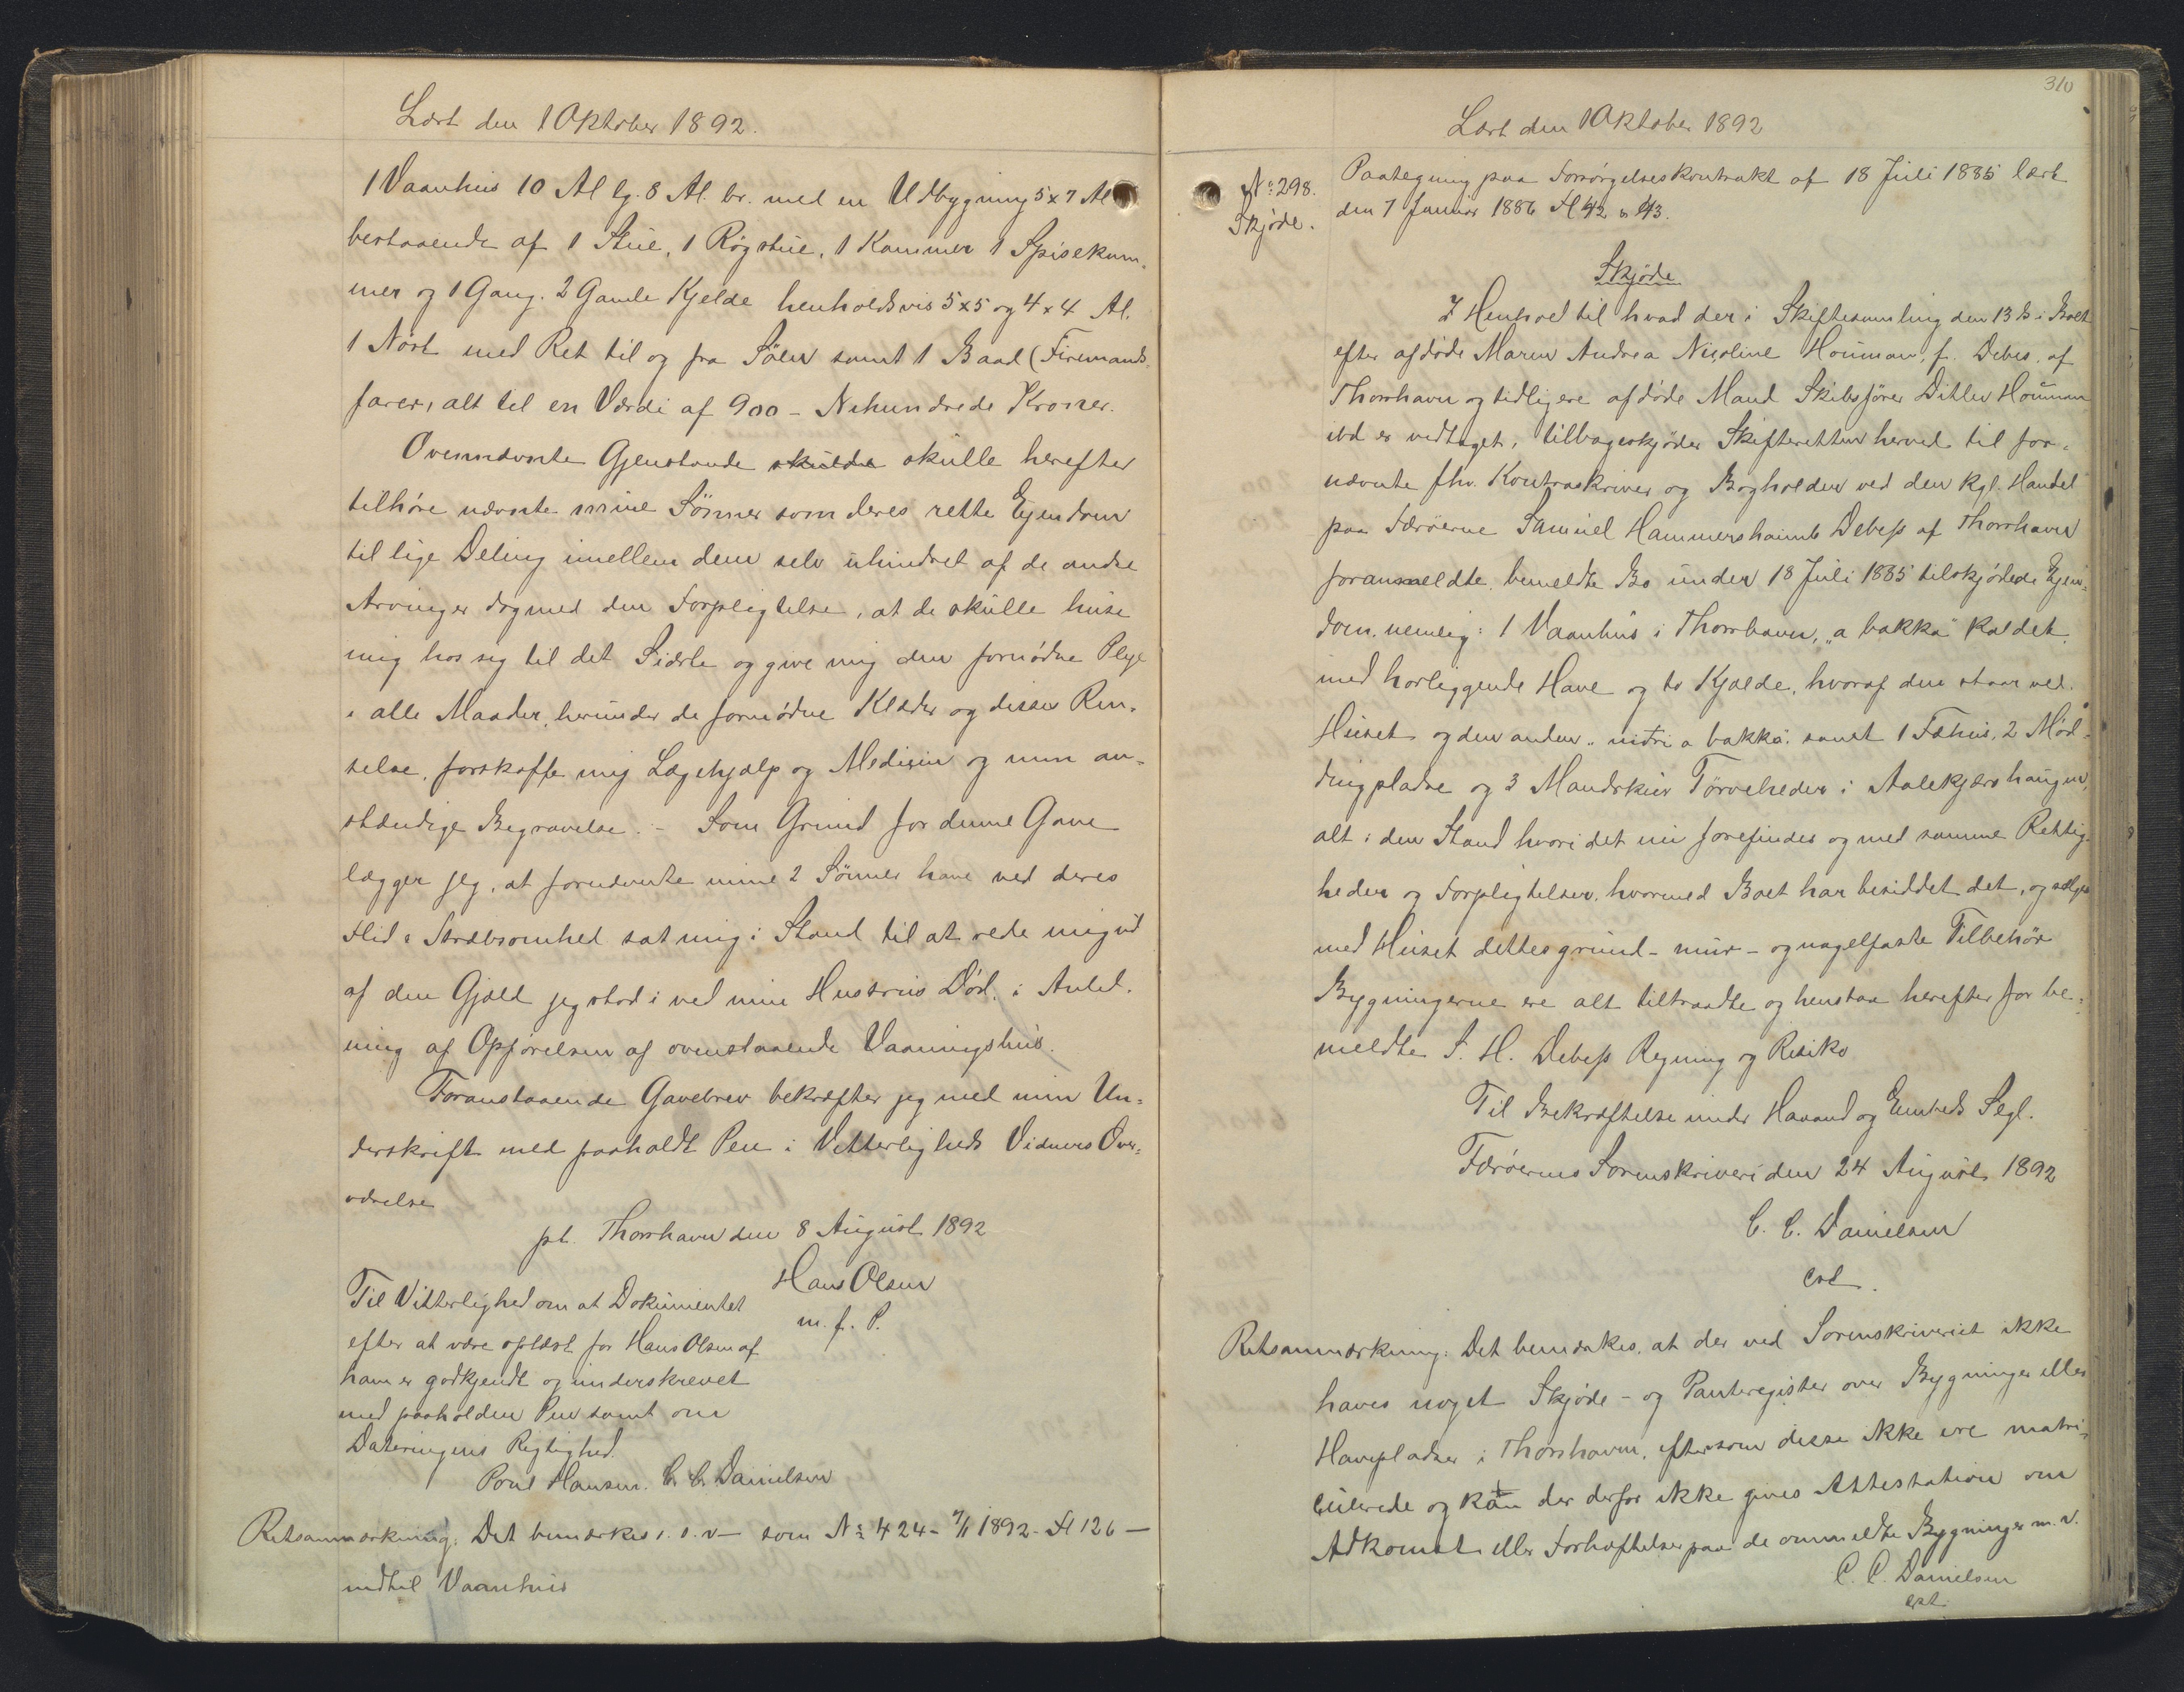 Læst den 1 Oktober 1892.
1 Vaanhus 10 Al lg. 8 Al. br. med en Udbygning 5x7 Al
bestaaende af 1 Stue, 1 Røgstue, 1 Kammer 1 Spisekam-
mer og 1 Gang. 2 Gamle Kjelde henholdsvis 5x5 og 4x4 Al.
1 Nøst med Ret til og fra Søen samt 1 Baad (Firemands-
farer, alt til en Værdi af 900 - Nihundrede Kroner.
Ovennævnte Gjenstande skulde skulle herefter
tilhøre nævnte mine Sønner som deres rette Ejendom
til lige Deling imellem dem selv uhindret af de andre
Arvinger dog med den Forpligtelse, at de skulle huse
mig hos sig til det Sidste og give mig den fornødne Pleje
i alle Maader, herunder de fornødne Klæder og disses Ren-
selse, forskaffe mig Lægehjælp og Medicin og min an-
stændige Begravelse. - Som Grund for denne Gave
lægger jeg, at forudnævnte mine 2 Sønner have ved deres
Flid & Stræbsomhed sat mig i Stand til at rede mig ud
af den Gjæld jeg stod i ved min Hustrus Død, i Anled-
ning af Opførelsen af ovenstaaende Vaaningshus.
Foranstaaende Gavebrev bekræfter jeg med min Un-
derskrift med paaholdt Pen i Vitterligheds Vidners Over-
værelse
pt. Thorshavn den 8 August 1892
Hans Olsen
m. f. P.
Til Vitterlighed om at Dokumentet
efter at være oplæst for Hans Olsen af
ham er godkjendt og underskrevet
med paaholden Pen samt om
Dateringens Rigtighed.
Poul Hansen. C. C. Danielsen
Retsanmærkning: Det bemærkes o. s. v — som No 424 - 7/1 1892 - fl 126 —
indtil Vaanhus
310
Læst den 1 Oktober 1892
No 298.
Skjøde.
Paategning paa Forsørgelseskontrakt af 18 Juli 1885 læst
den 7 Januar 1886 fl 42 & 43.
Skjøde
I Henhold til hvad der i Skiftesamling den 13 ds i Boet
efter afdøde Maren Andrea Nicoline Houman, f. Debes, af
Thorshavn og tidligere afdøde Mand Skibsfører Ditlev Houman
ibd er vedtaget, tilbageskjøder Skifteretten herved til for-
nævnte fhv. Kontraskriver og Bogholder ved den kgl. Handel
paa Færøerne Samuel Hammershaimb Debess af Thorshavn
foranmeldte, bemeldte Bo under 18 Juli 1885 tilskjødede Ejen-
dom, nemlig: 1 Vaanhus i Thorshavn, "a bakka" kaldet,
med hosliggende Have og to Kjælde, hvoraf den staar ved
Huset og den anden "nidri a bakka" samt 1 Fæhus, 2 Mød-
dingpladse og 3 Mandskur Tørveheder i Aalekjærshaugen,
alt i den Stand hvori det nu forefindes og med samme Rettig-
heder og Forpligtelser, hvormed Boet har besiddet det, og sælges
med Huset dettes grund- mur- og nagelfaste Tilbehør
Bygningerne ere alt tiltraadte og henstaa herefter for be-
meldte S. H. Debess Regning og Risiko
Til Bekræftelse under Haand og Embeds Segl.
Færøernes Sorenskriveri den 24 August 1892
C. C. Danielsen
cst.
Retsanmærkning: Det bemærkes, at der ved Sorenskriveriet ikke
haves noget Skjøde- og Panteregister over Bygninger eller
Havepladser i Thorshavn, eftersom disse ikke ere matri-
culerede og kan der derfor ikke gives Attestation om
Adkomst eller Forhæftelser paa de ommeldte Bygninger m. v.
C. C. Danielsen
cst.